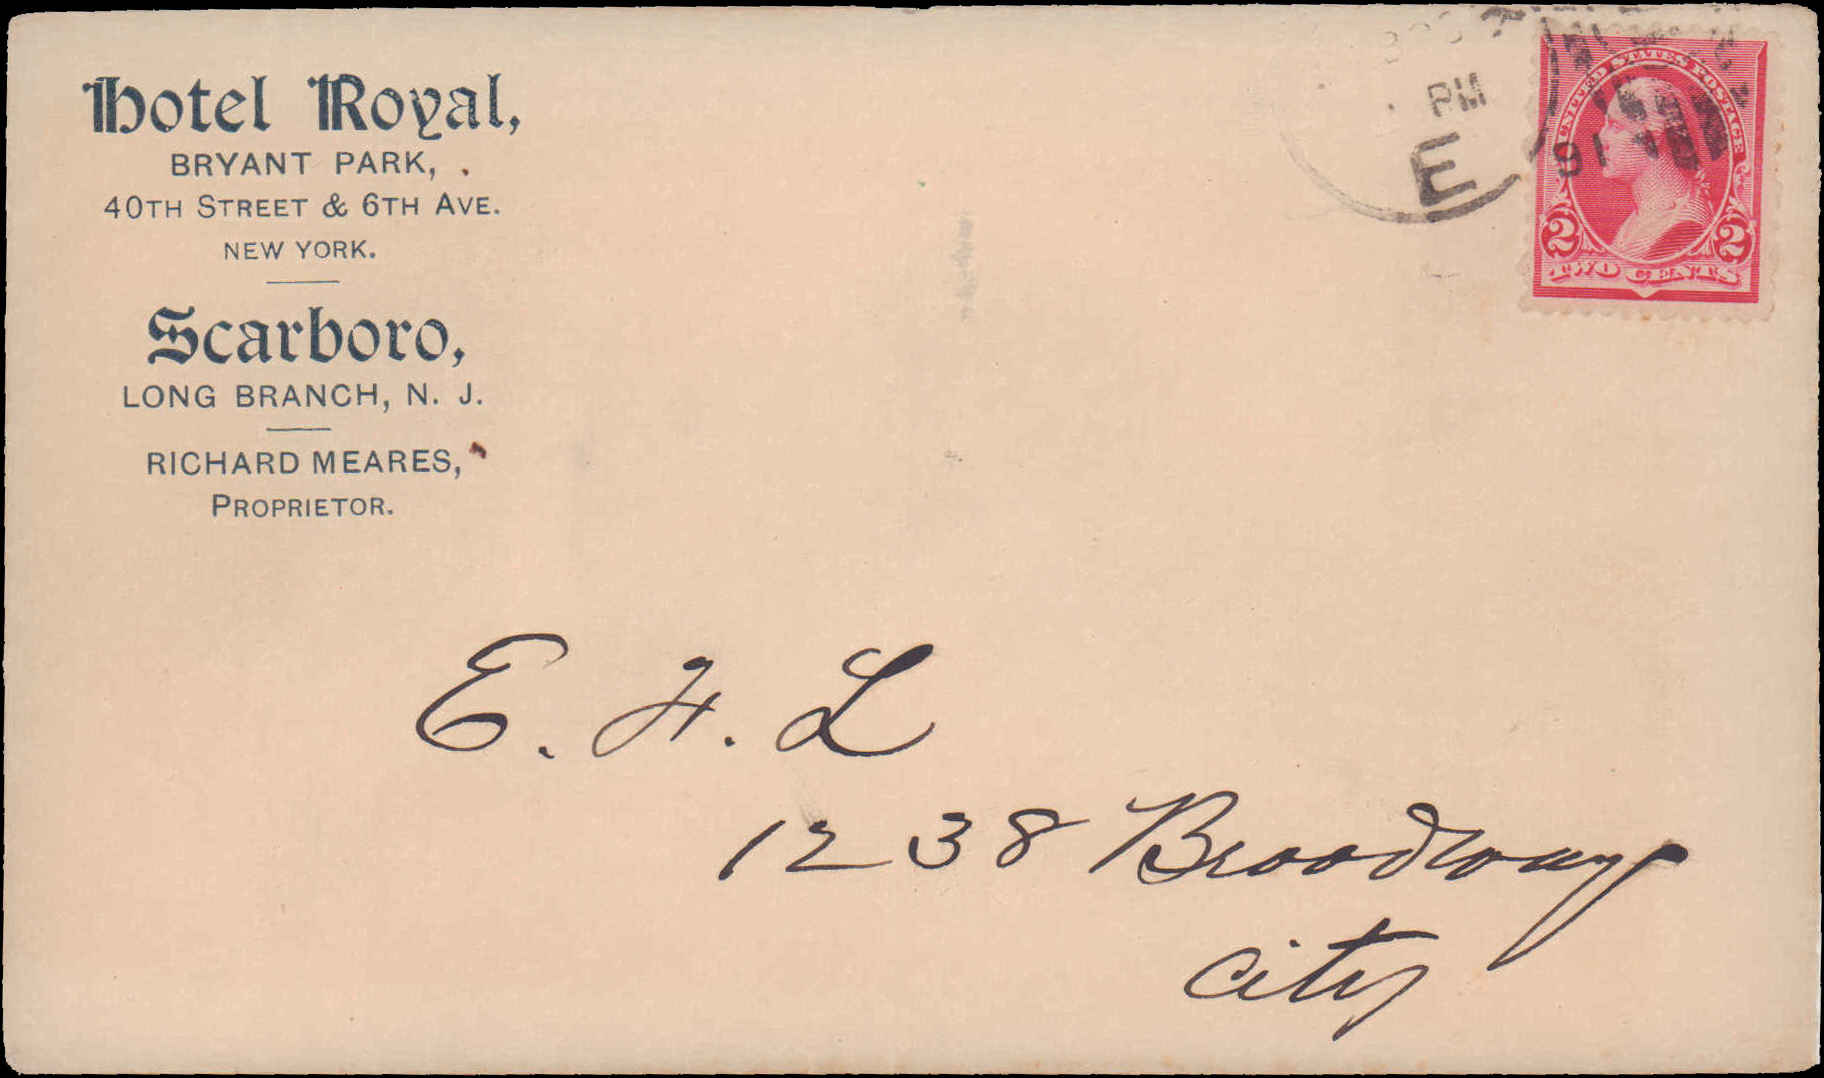 Hotel Royal,
BRYANT PARK,
40TH STREET & 6TH AVE.
NEW YORK.
Scarboro,
LONG BRANCH, N. J.
RICHARD MEARES,
PROPRIETOR.
PM
E
91
UNITED STATES POSTAGE
2 2
TWO CENTS
E. H. L
1238 Broadway
City